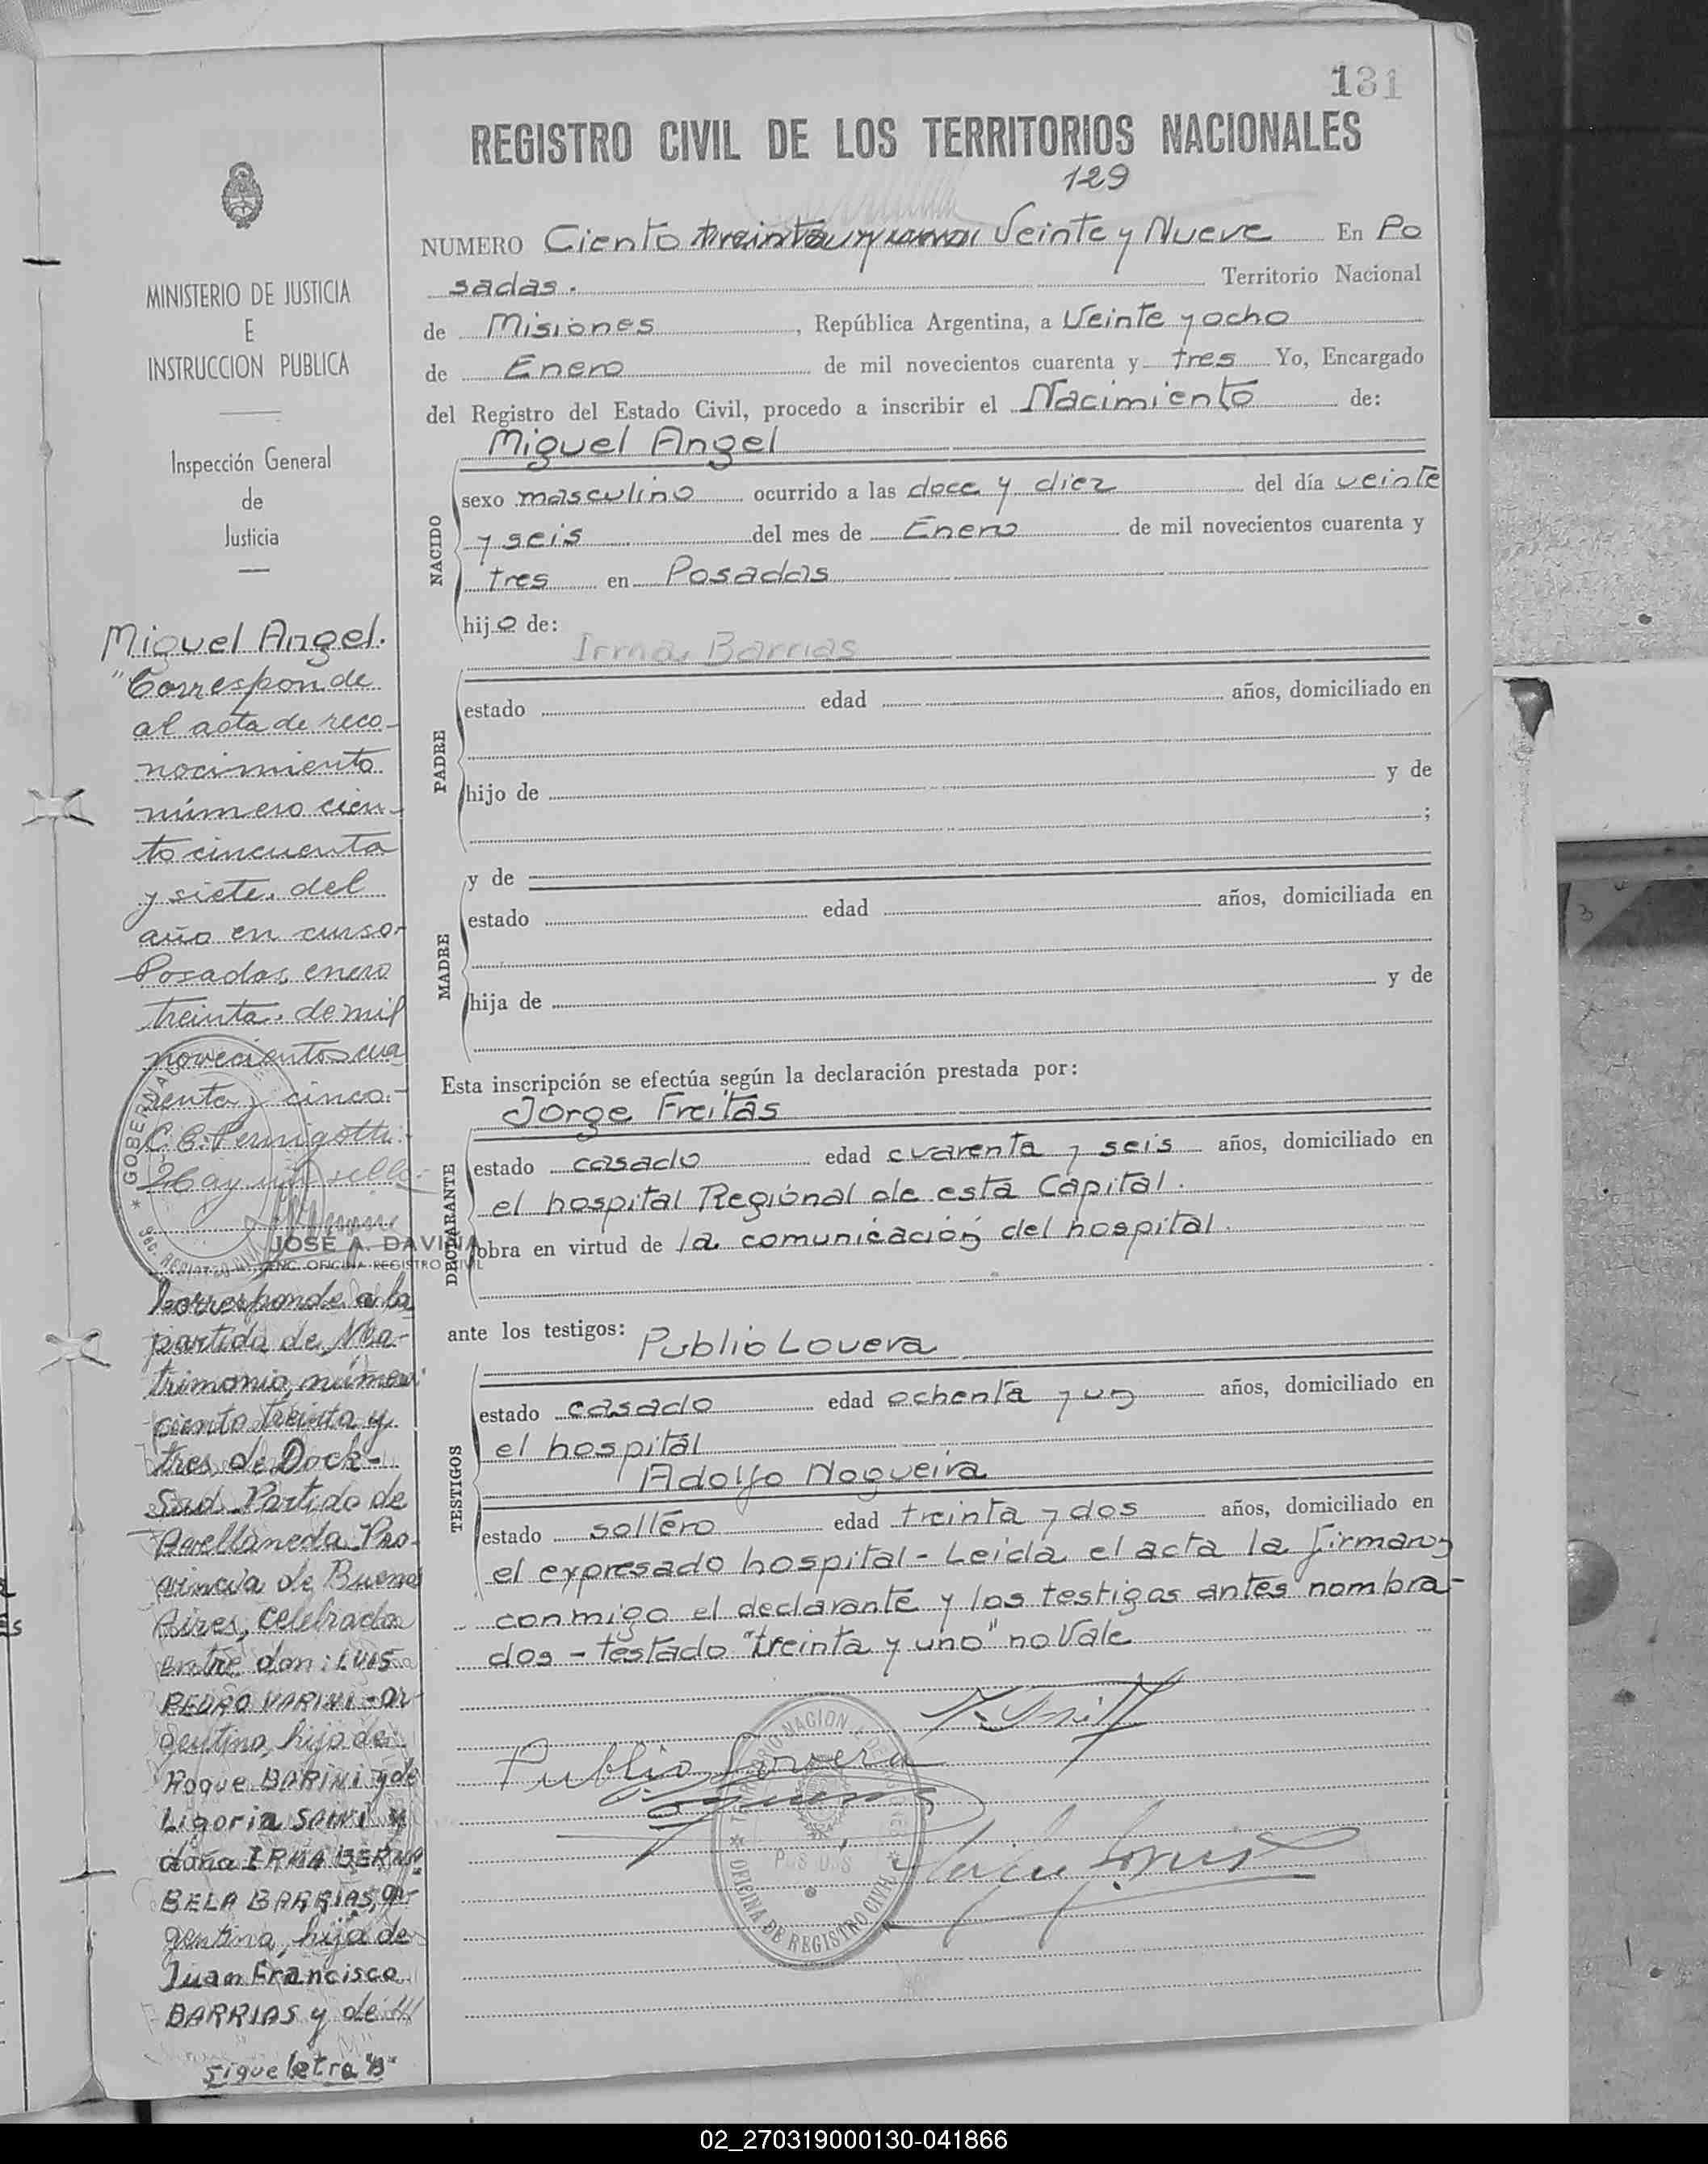 131
REGISTRO CIVIL DE LOS TERRITORIOS NACIONALES
129
NUMERO Ciento treinta y uno Veinte y Nueve En Po
sadas. Territorio Nacional
de Misiones, República Argentina, a Veinte y ocho
de Enero de mil novecientos cuarenta y tres Yo, Encargado
del Registro del Estado Civil, procedo a inscribir el Nacimiento de:
Miguel Angel
NACIDO
sexo masculino ocurrido a las doce y diez del día veinte
y seis del mes de Enero de mil novecientos cuarenta y
tres en Posadas
hijo de:
Irma Barrias
PADRE
estado edad años, domiciliado en
hijo de y de
;
y de
MADRE
estado edad años, domiciliada en
hija de y de
Esta inscripción se efectúa según la declaración prestada por:
Jorge Freitas
DECLARANTE
estado casado edad cuarenta y seis años, domiciliado en
el hospital Regional de esta Capital.
obra en virtud de la comunicación del hospital.
ante los testigos:
Publio Lovera
TESTIGOS
estado casado edad ochenta y un años, domiciliado en
el hospital
Adolfo Nogueira
estado soltero edad treinta y dos años, domiciliado en
el expresado hospital - Leida el acta la firmaron
conmigo el declarante y los testigos antes nombra-
dos - testado "treinta y uno" no Vale
Publio Lovera
OFICINA DE REGISTRO CIVIL
MINISTERIO DE JUSTICIA
E
INSTRUCCION PUBLICA
Inspección General
de
Justicia
Miguel Angel.
"Corresponde
al acta de reco-
nocimiento
número cien-
to cincuenta
y siete. del
año en curso-
Posadas, enero
treinta. de mil
novecientos cua
renta y cinco.-
C. C. Pernigotti.
Hay un sello.-
JOSÉ A. DAVIÑA
ENC. OFICINA REGISTRO CIVIL
Corresponde a la
partida de Ma-
trimonio, número
ciento treinta y
tres de Dock-
Sud. Partido de
Avellaneda Pro-
vincia de Buenos
Aires, celebrada
entre don: LUIS
PEDRO VARINI - ar
gentino, hijo de
Roque BARINI y de
Ligoria SANNI y
doña IRMA
BELA BARRIAS, ar-
gentina, hija de
Juan Francisco
BARRIAS y de
sigue letra "B"
02_270319000130-041866